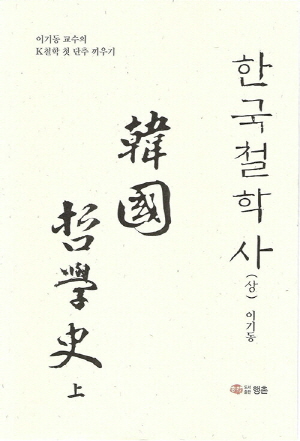 이기동 교수의
K철학 첫 단추 끼우기
한국철학사(상) 이기동
韓國
哲學史 上
도서출판 행촌